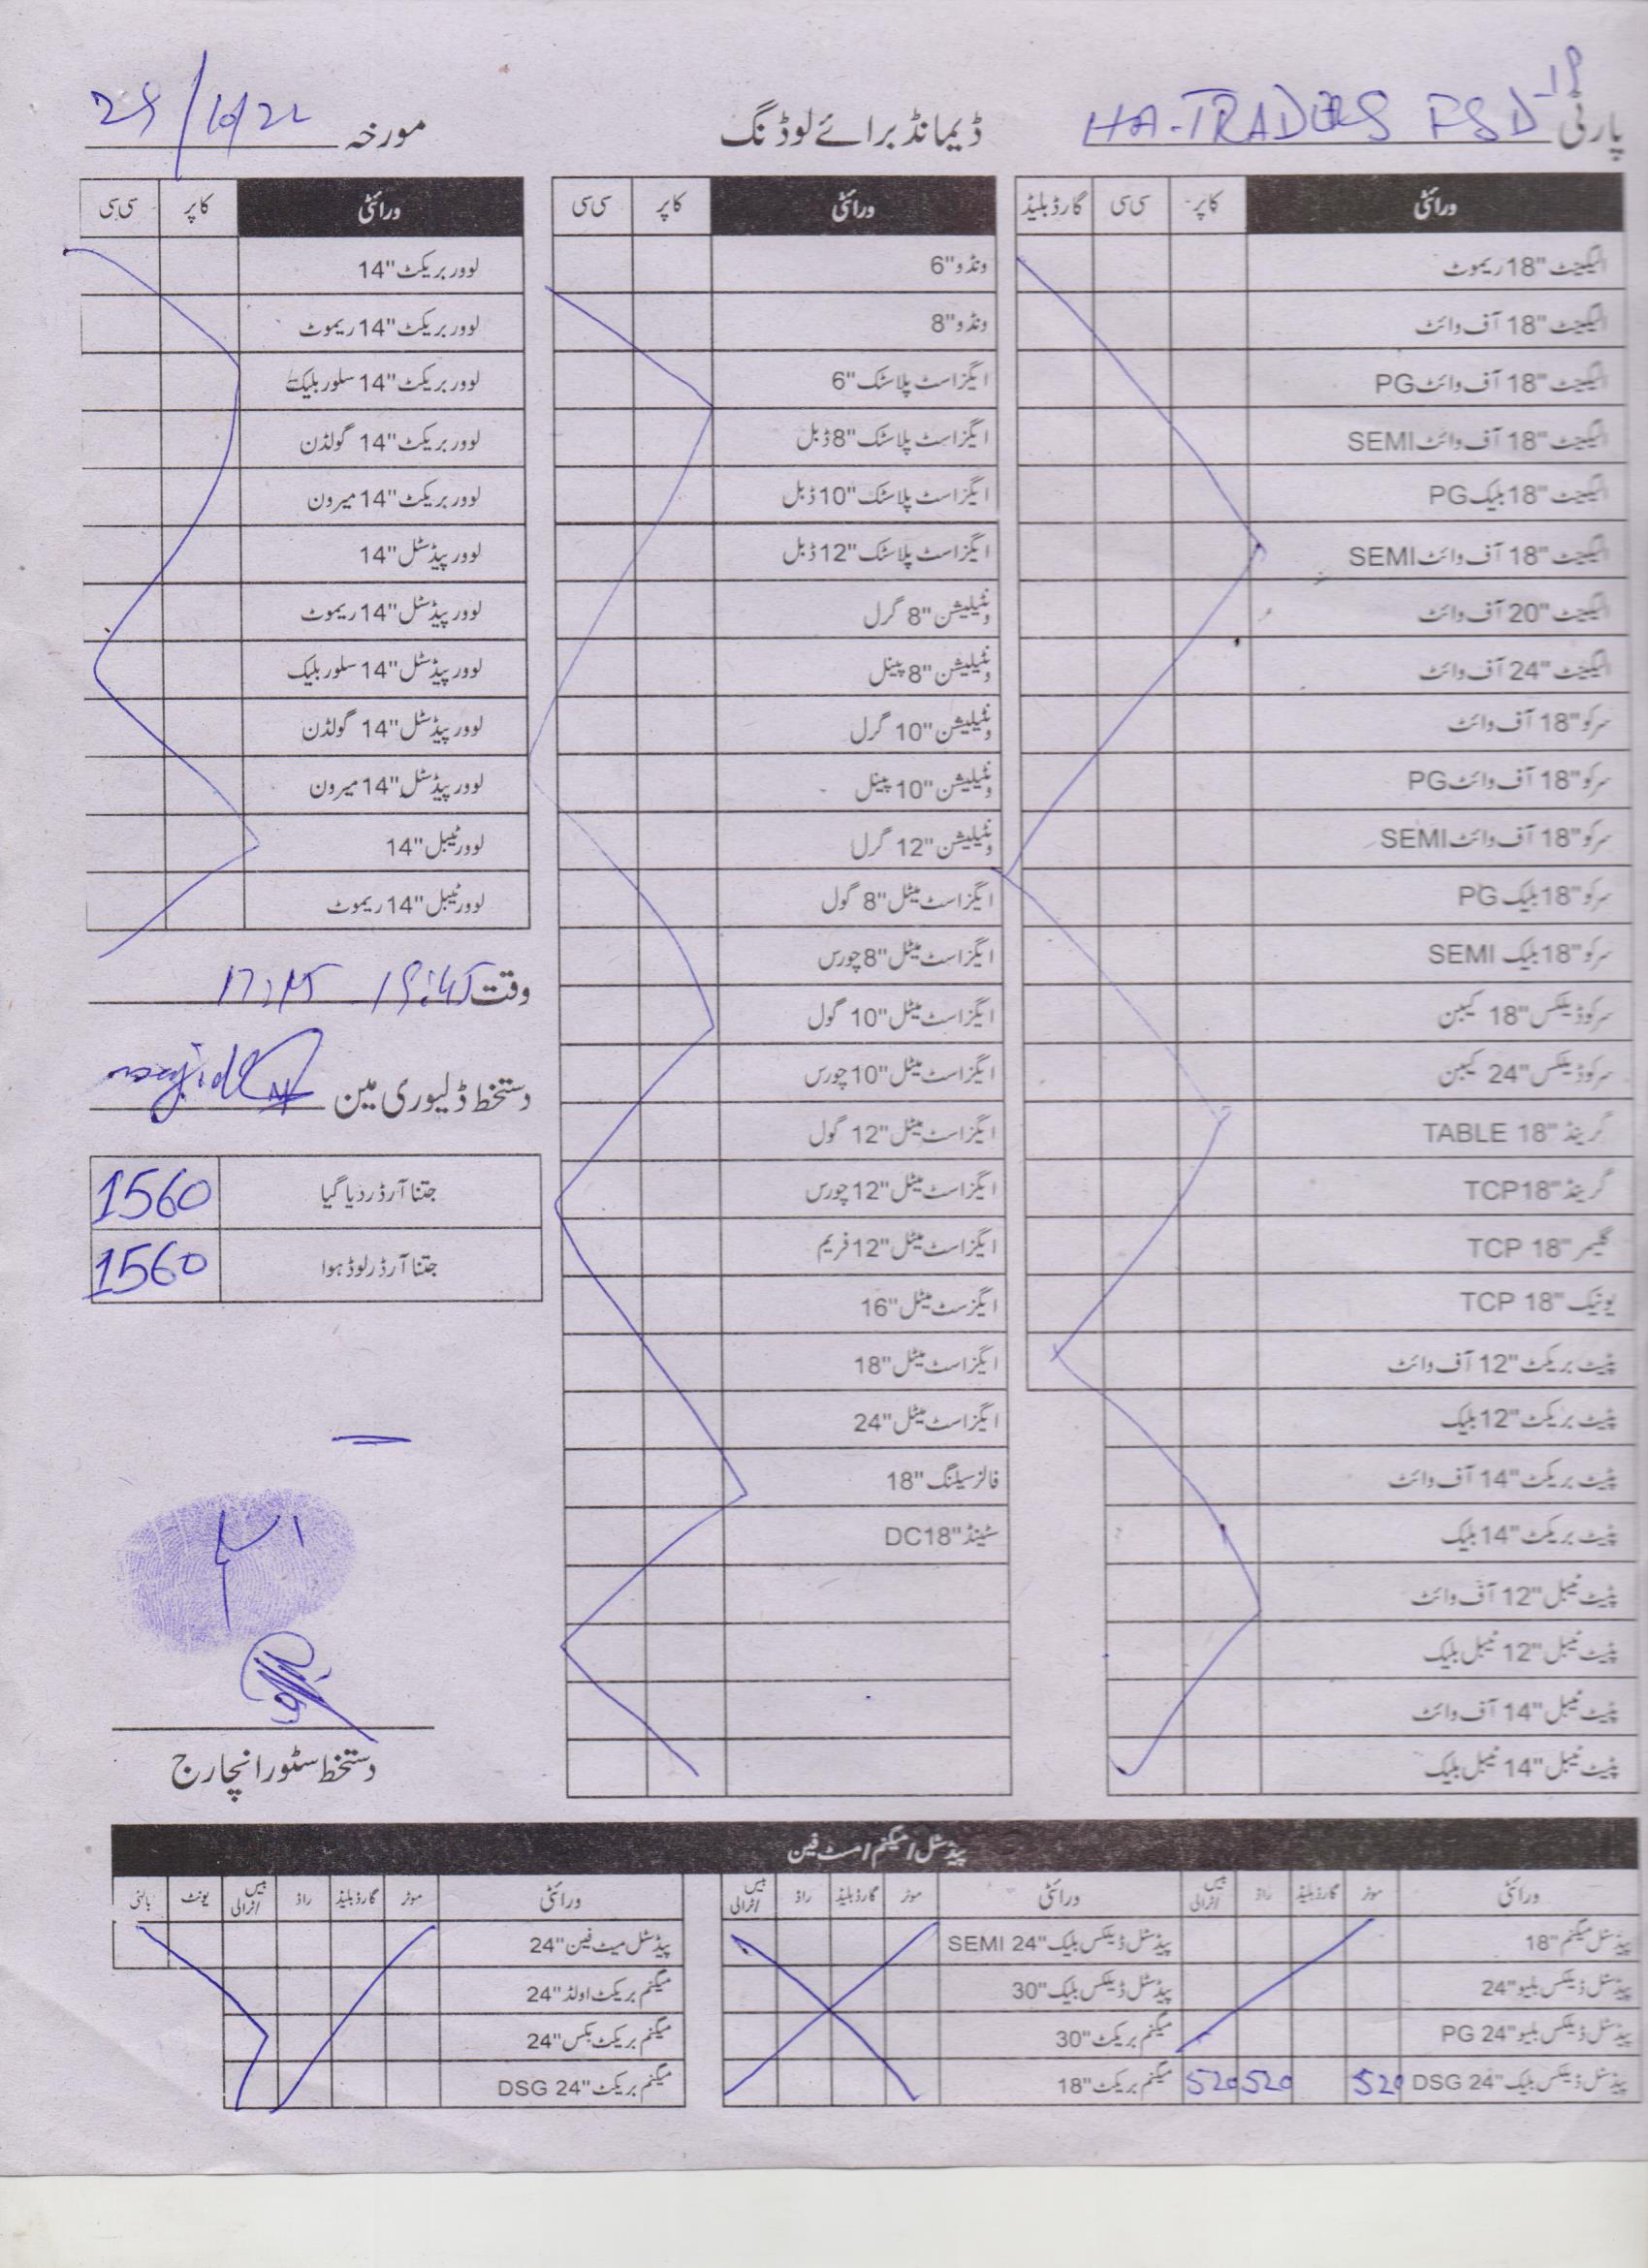 پارٹی HA-TRADERS FSD
ڈیمانڈ برائے لوڈنگ
مورخہ 29/10/22
ورائٹی کاپر سی سی گارڈ بلیڈ
الیکٹ "18 ریموٹ
الیکٹ "18 آف وائٹ
الیکٹ "18 آف وائٹ PG
الیکٹ "18 آف وائٹ SEMI
الیکٹ "18 بلیک PG
الیکٹ "18 آف وائٹ SEMI
الیکٹ "20 آف وائٹ
الیکٹ "24 آف وائٹ
سرکو "18 آف وائٹ
سرکو "18 آف وائٹ PG
سرکو "18 آف وائٹ SEMI
سرکو "18 بلیک PG
سرکو "18 بلیک SEMI
سرکو ڈیلکس "18 کیبن
سرکو ڈیلکس "24 کیبن
گرینڈ "18 TABLE
گرینڈ "18 TCP
گلیمر "18 TCP
یونیک "18 TCP
پٹیٹ بریکٹ "12 آف وائٹ
پٹیٹ بریکٹ "12 بلیک
پٹیٹ بریکٹ "14 آف وائٹ
پٹیٹ بریکٹ "14 بلیک
پٹیٹ ٹیبل "12 آف وائٹ
پٹیٹ ٹیبل "12 ٹیبل بلیک
پٹیٹ ٹیبل "14 آف وائٹ
پٹیٹ ٹیبل "14 ٹیبل بلیک
ورائٹی کاپر سی سی
ونڈو "6
ونڈو "8
ایگزاسٹ پلاسٹک "6
ایگزاسٹ پلاسٹک "8 ڈبل
ایگزاسٹ پلاسٹک "10 ڈبل
ایگزاسٹ پلاسٹک "12 ڈبل
ونٹیلیشن "8 گرل
ونٹیلیشن "8 پینل
ونٹیلیشن "10 گرل
ونٹیلیشن "10 پینل
ونٹیلیشن "12 گرل
ایگزاسٹ میٹل "8 گول
ایگزاسٹ میٹل "8 چورس
ایگزاسٹ میٹل "10 گول
ایگزاسٹ میٹل "10 چورس
ایگزاسٹ میٹل "12 گول
ایگزاسٹ میٹل "12 چورس
ایگزاسٹ میٹل "12 فریم
ایگزسٹ میٹل "16
ایگزاسٹ میٹل "18
ایگزاسٹ میٹل "24
فالز سیلنگ "18
سٹینڈ "18 DC
ورائٹی کاپر سی سی
لوور بریکٹ "14
لوور بریکٹ "14 ریموٹ
لوور بریکٹ "14 سلور بلیک
لوور بریکٹ "14 گولڈن
لوور بریکٹ "14 میرون
لوور پیڈسٹل "14
لوور پیڈسٹل "14 ریموٹ
لوور پیڈسٹل "14 سلور بلیک
لوور پیڈسٹل "14 گولڈن
لوور پیڈسٹل "14 میرون
لوور ٹیبل "14
لوور ٹیبل "14 ریموٹ
وقت 17:15 19:45
دستخط ڈلیوری مین
جتنا آرڈر دیا گیا 1560
جتنا آرڈر لوڈ ہوا 1560
دستخط سٹور انچارج
پیڈسٹل / میگنم / مسٹ فین
ورائٹی موٹر گارڈ بلیڈ راڈ بیس / ٹرالی
پیڈسٹل میگنم "18
پیڈسٹل ڈیلکس بلیو "24
پیڈسٹل ڈیلکس بلیو "24 PG
پیڈسٹل ڈیلکس بلیک "24 DSG 520 520 520
ورائٹی موٹر گارڈ بلیڈ راڈ بیس / ٹرالی
پیڈسٹل ڈیلکس بلیک "24 SEMI
پیڈسٹل ڈیلکس بلیک "30
میگنم بریکٹ "30
میگنم بریکٹ "18
ورائٹی موٹر گارڈ بلیڈ راڈ بیس / ٹرالی یونٹ بالٹی
پیڈسٹل میٹ فین "24
میگنم بریکٹ اولڈ "24
میگنم بریکٹ بکس "24
میگنم بریکٹ "24 DSG